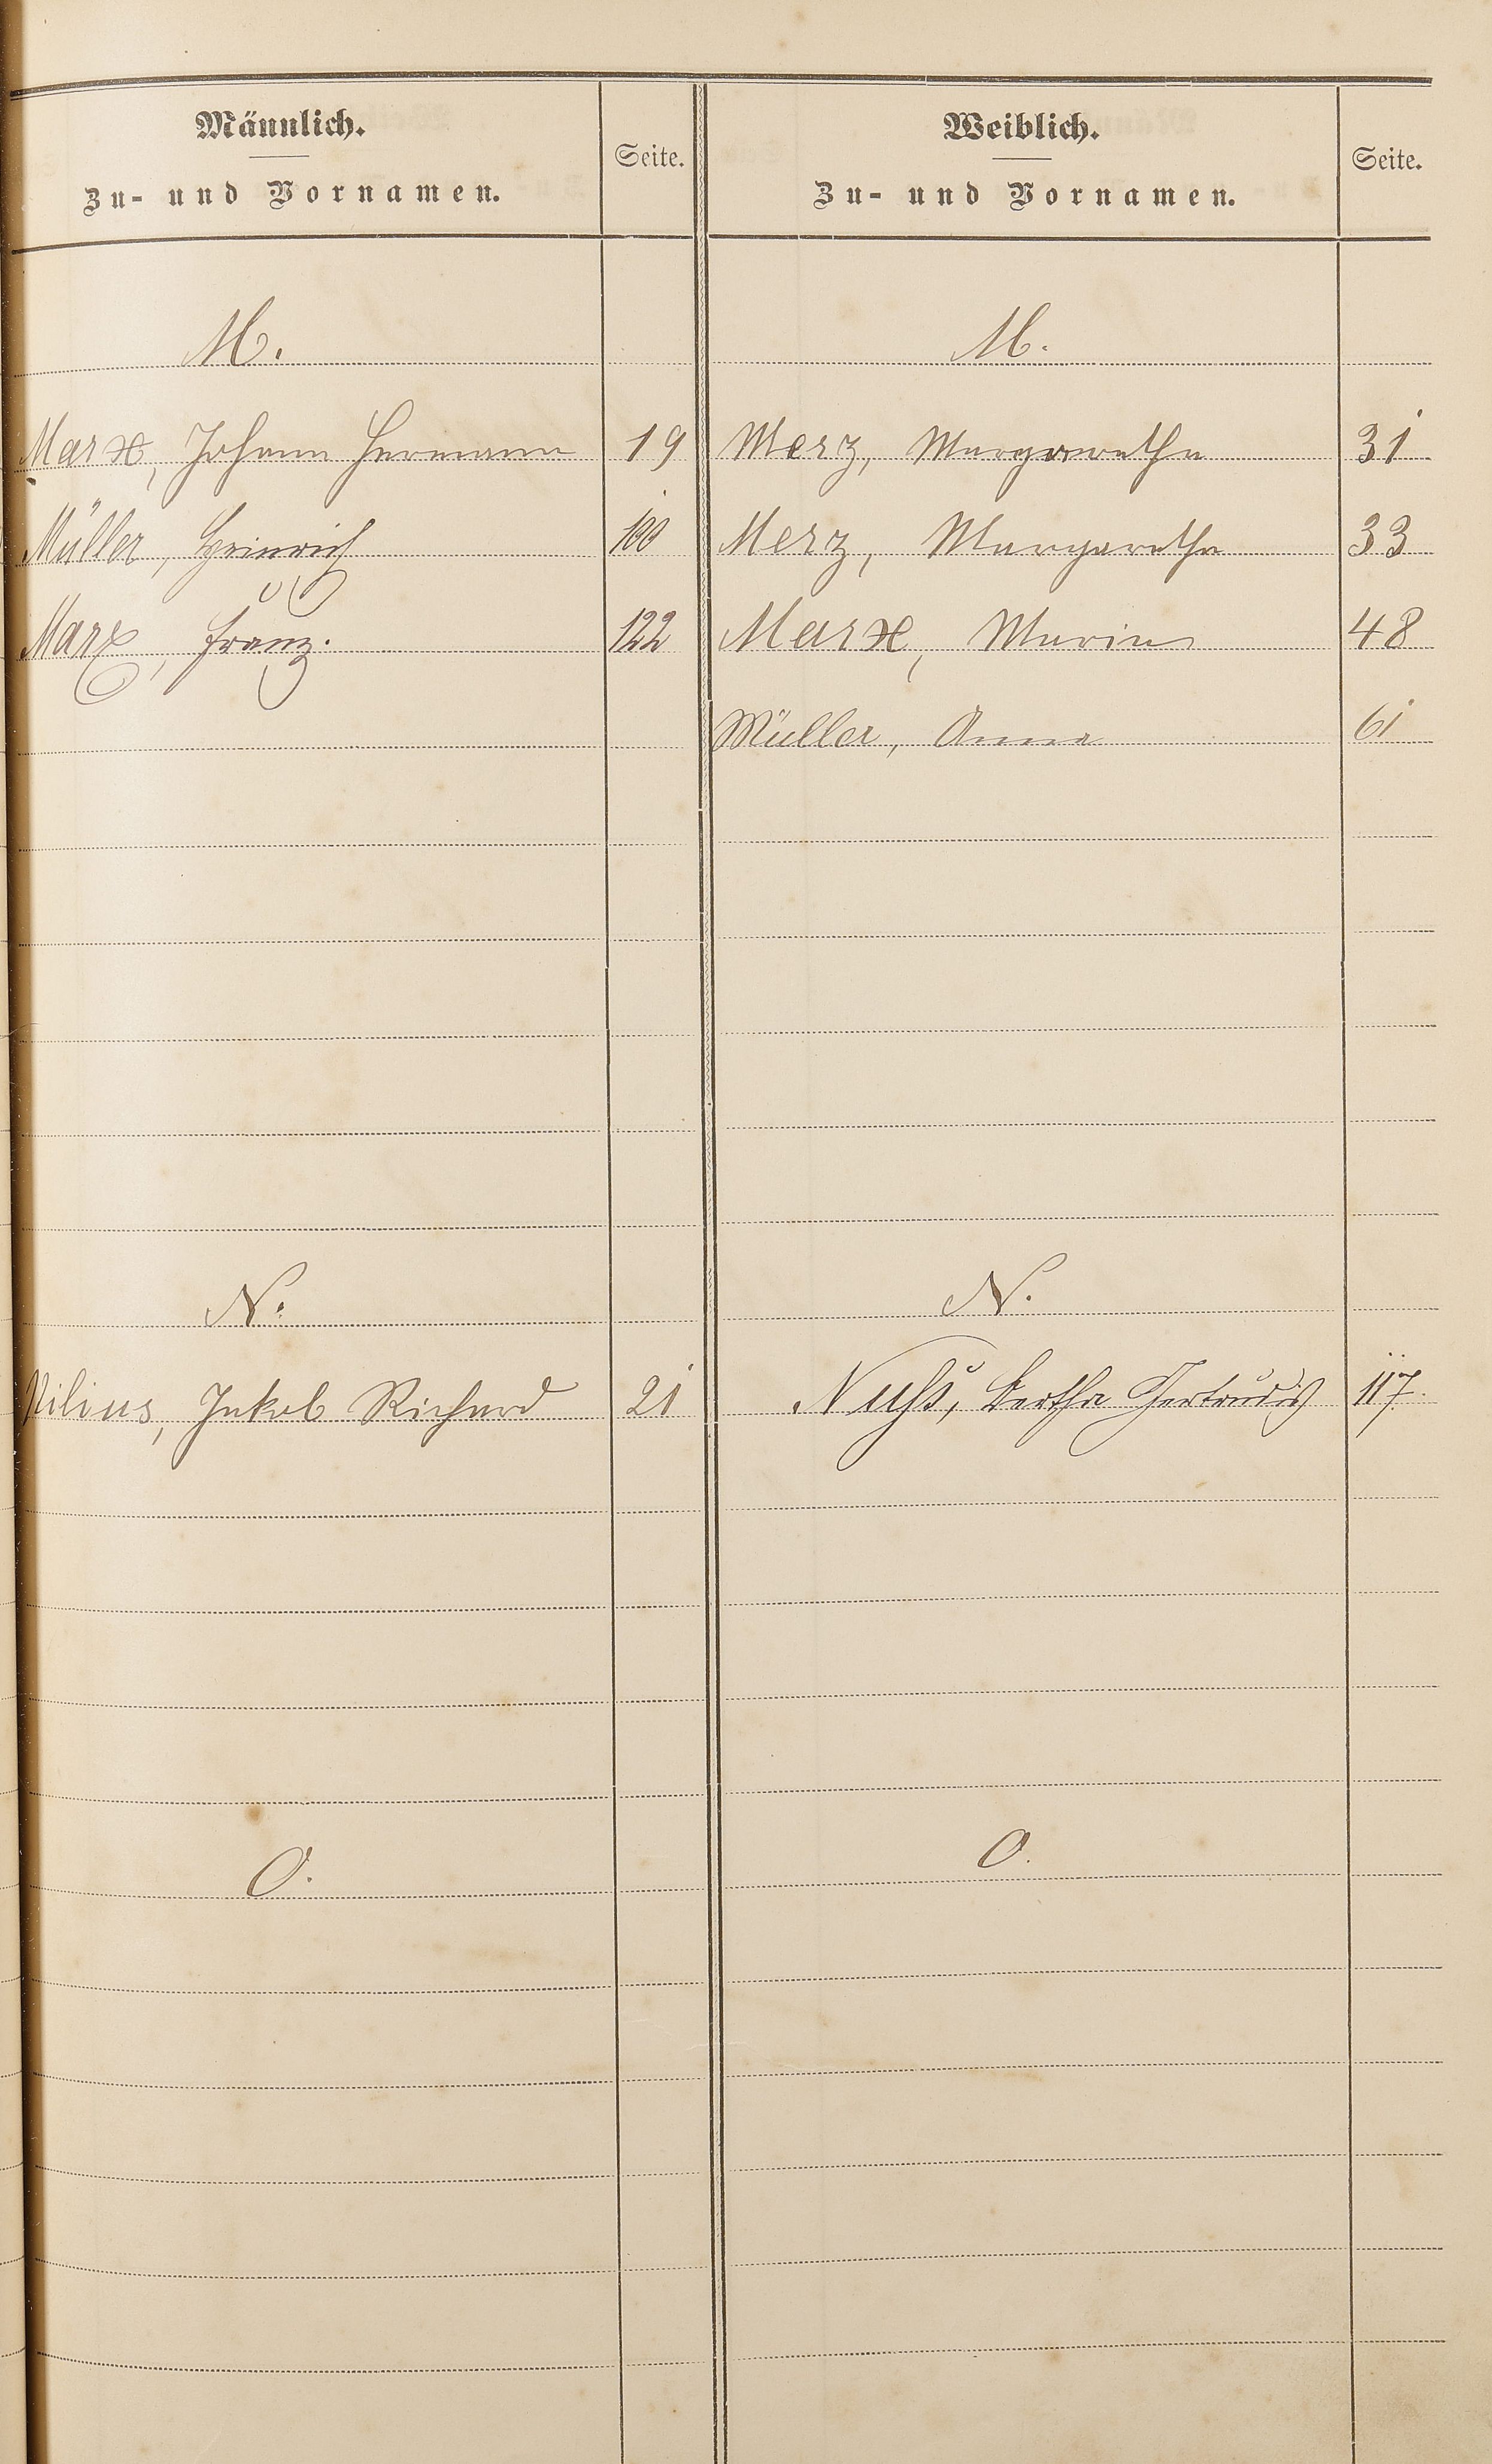 Männlich.
Zu- und Vornamen.
Seite.
Weiblich.
Zu- und Vornamen.
Seite.
M.
M.
Marx, Johann Hermann 19
Merz, Margaretha 31
Müller, Heinrich 100
Merz, Margaretha 33
Marx, Franz. 122
Marx, Maria 48
Müller, Anna 61
N.
N.
Nilius, Jakob Richard 21
Nuhs, Bertha Gertrud 117.
O.
O.